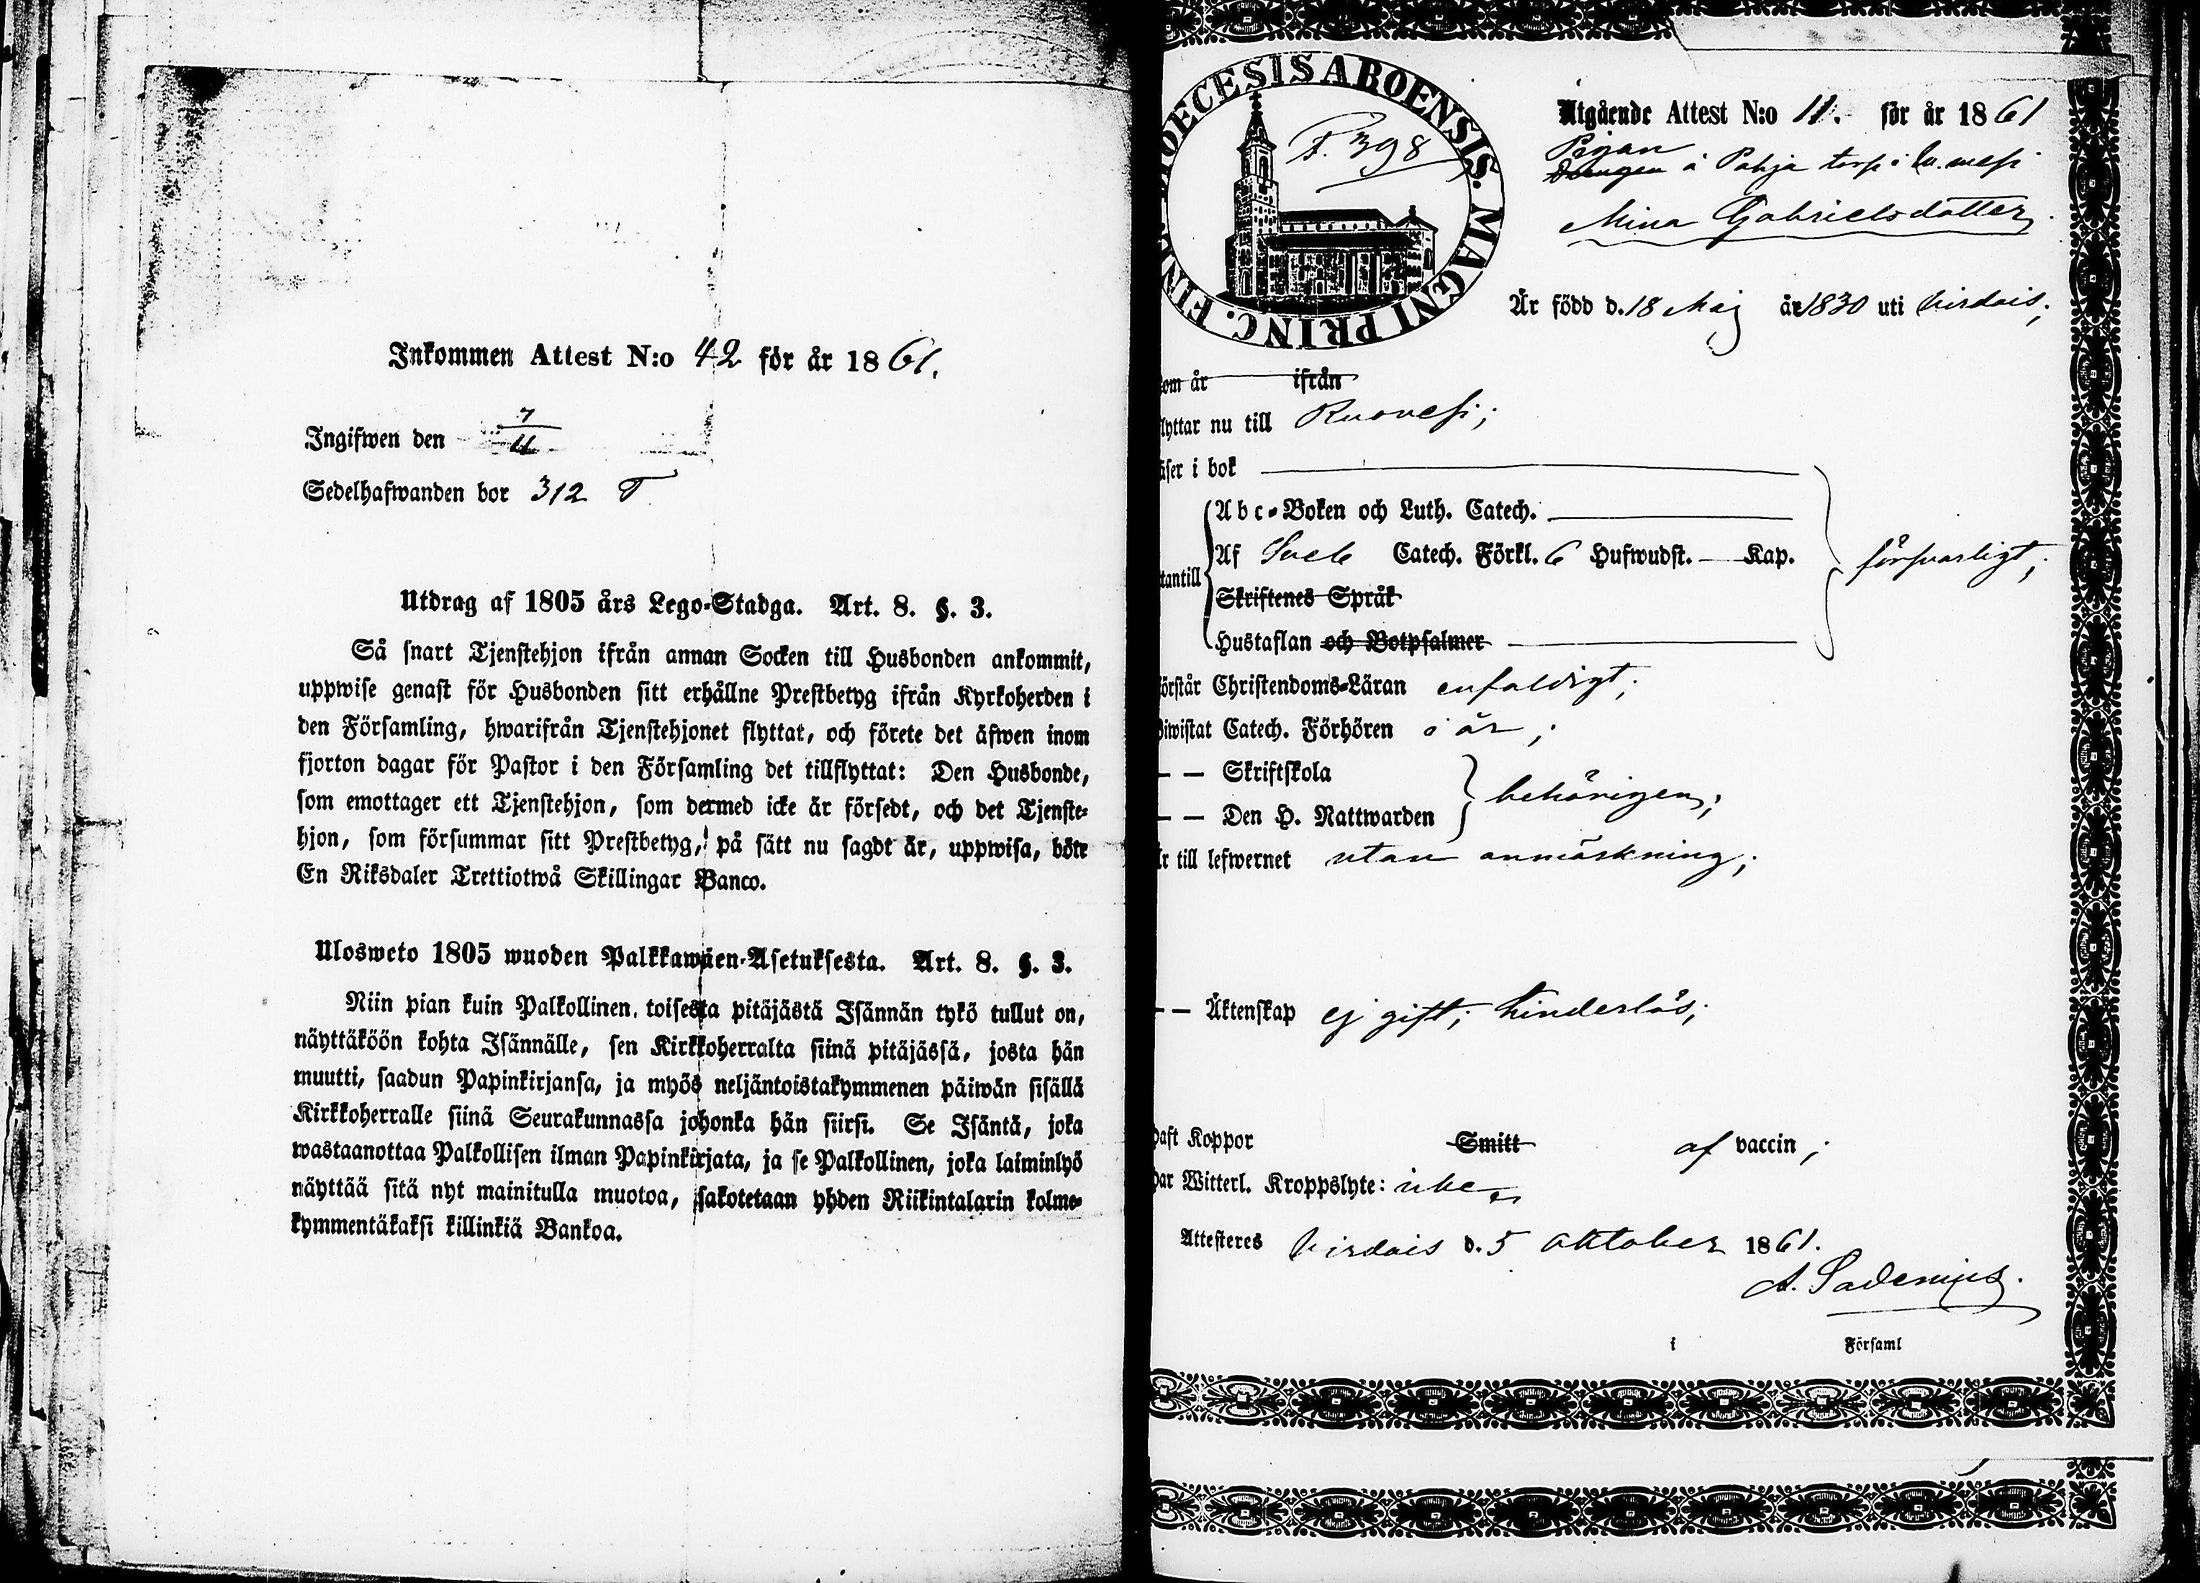 Inkommen Attest N:o 42 för år 1861.
Ingifwen den 7/11
Sedelhafwanden bor 312 T
Utdrag af 1805 års Lego-Stadga. Art. 8. §. 3.
Så snart Tjenstehjon ifrån annan Socken till Husbonden ankommit,
uppwise genast för Husbonden sitt erhållne Prestbetyg ifrån Kyrkoherden i
den Församling, hwarifrån Tjenstehjonet flyttat, och förete det äfwen inom
fjorton dagar för Pastor i den Församling det tillflyttat: Den Husbonde,
som emottager ett Tjenstehjon, som dermed icke är försedt, och det Tjenste-
hjon, som försummar sitt Prestbetyg, på sätt nu sagdt är, uppwisa, böte
En Riksdaler Trettiotwå Skillingar Banco.
Ulosweto 1805 wuoden Palkkawäen-Asetuksesta. Art. 8. §. 3.
Niin pian kuin Palkollinen. toisesta pitäjästä Isännän tykö tullut on,
näyttäköön kohta Isännälle, sen Kirkkoherralta siinä pitäjässä, josta hän
muutti, saadun Papinkirjansa, ja myös neljäntoistakymmenen päiwän sisällä
Kirkkoherralle siinä Seurakunnassa johonka hän siirsi. Se Isäntä, joka
wastaanottaa Palkollisen ilman Papinkirjata, ja se Palkollinen, joka laiminlyö
näyttää sitä nyt mainitulla muotoa, sakotetaan yhden Riikintalarin kolme-
kymmentäkaksi killinkiä Bankoa.
DIOECESIS ABOENSIS. MAGNI PRINC. FINL
F. 398
Utgående Attest N:o 11. för år 1861
Pigan
Drengen å Pohja torp i
Mina Gabrielsdotter
Är född d. 18 Maj år 1830 uti Virdois;
om år ifrån
lyttar nu till Ruovesi;
äser i bok
Abc-Boken och Luth. Catech.
Af Sveb Catech. Förkl. 6 Hufwudst. — Kap. försvarligt;
tantill
Skriftenes Språk
Hustaflan och Botpsalmer
örstår Christendoms-Läran enfaldigt;
iwistat Catech. Förhören i år;
— — Skriftskola
— — Den H. Nattwarden behörigen;
r till lefwernet utan anmärkning;
— — Äktenskap ej gift; hinderlös;
aft Koppor Smitt af vaccin;
ar Witterl. Kroppslyte:
Attesteres Virdois d. 5 Oktober 1861.
A. Sadenius.
i Församl